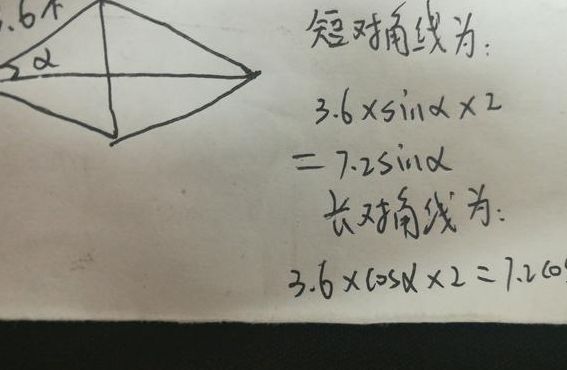 3.6个
α
短对角线为:
3.6×sinα×2
=7.2sinα
长对角线为:
3.6×cosα×2=7.2cos